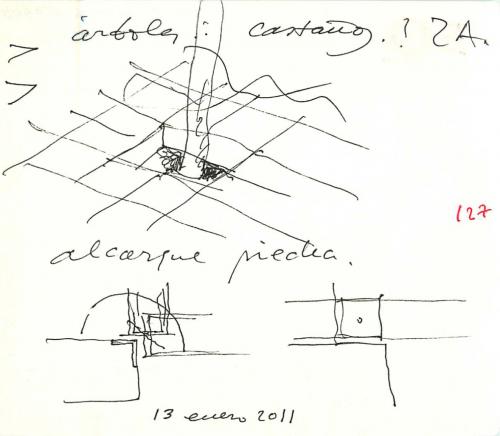 árboles : castaños.? ZA.
127
alcorque piedra.
13 enero 2011